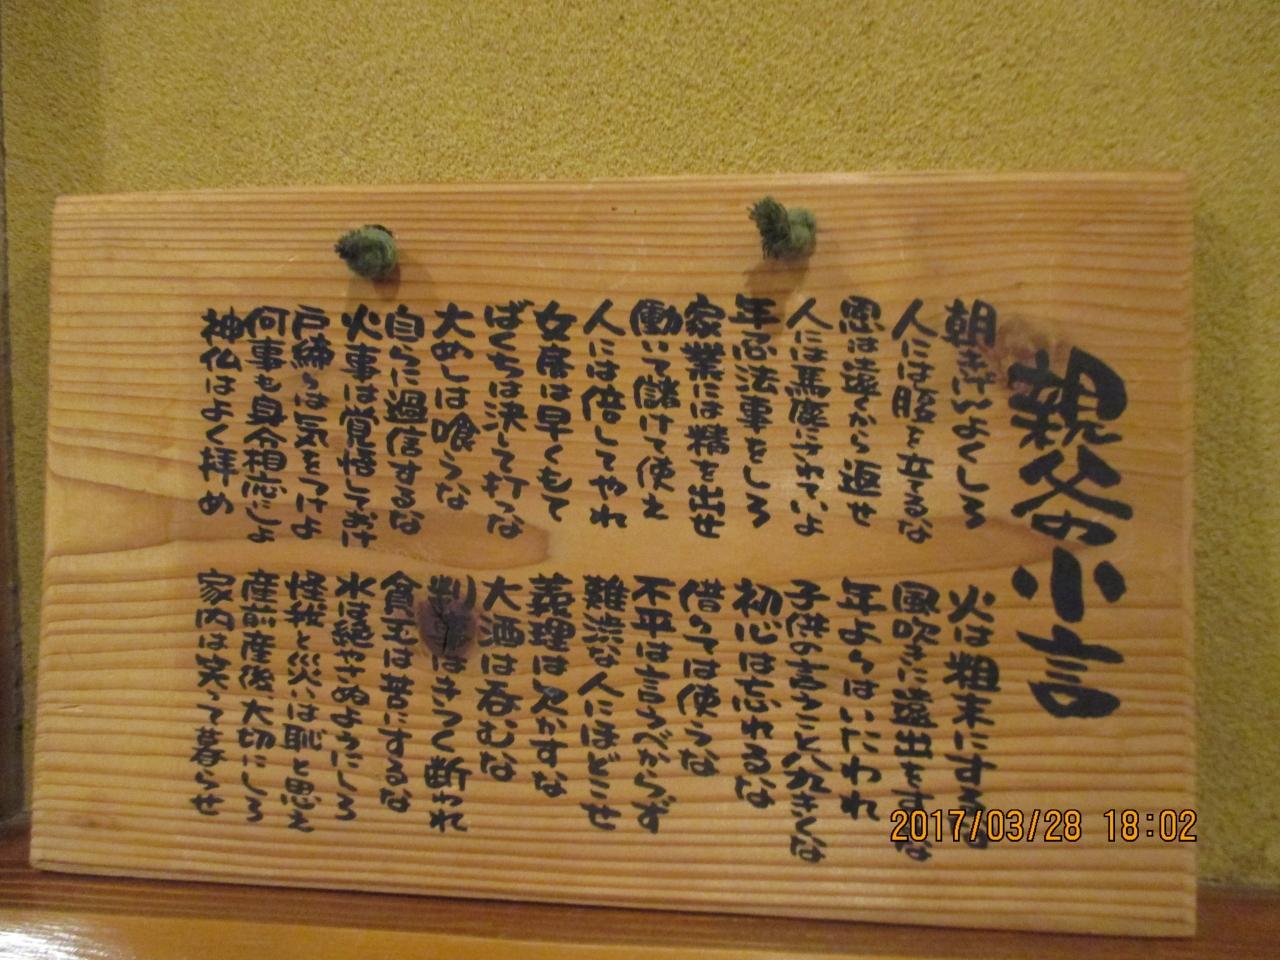 親父の小言
朝きげんよくしろ
火は粗末にするな
人には腹を立てるな
風吹きに遠出をするな
恩は遠くから返せ
年よりはいたわれ
人には馬鹿にされていよ
子供の言うこと八九きくな
年忌法事をしろ
初心は忘れるな
家業には精を出せ
借りては使うな
働いて儲けて使え
不平は言うべからず
人には倍してやれ
難渋な人にほどこせ
女房は早くもて
義理は欠かすな
ばくちは決して打つな
大酒は呑むな
大めしは喰うな
判事はきつく断われ
自らに過信するな
貧乏は苦にするな
火事は覚悟しておけ
水は絶やさぬようにしろ
戸締りは気をつけよ
怪我と災いは恥と思え
何事も身分相応にしよ
産前産後大切にしろ
神仏はよく拝め
家内は笑って暮らせ
2017/03/28 18:02